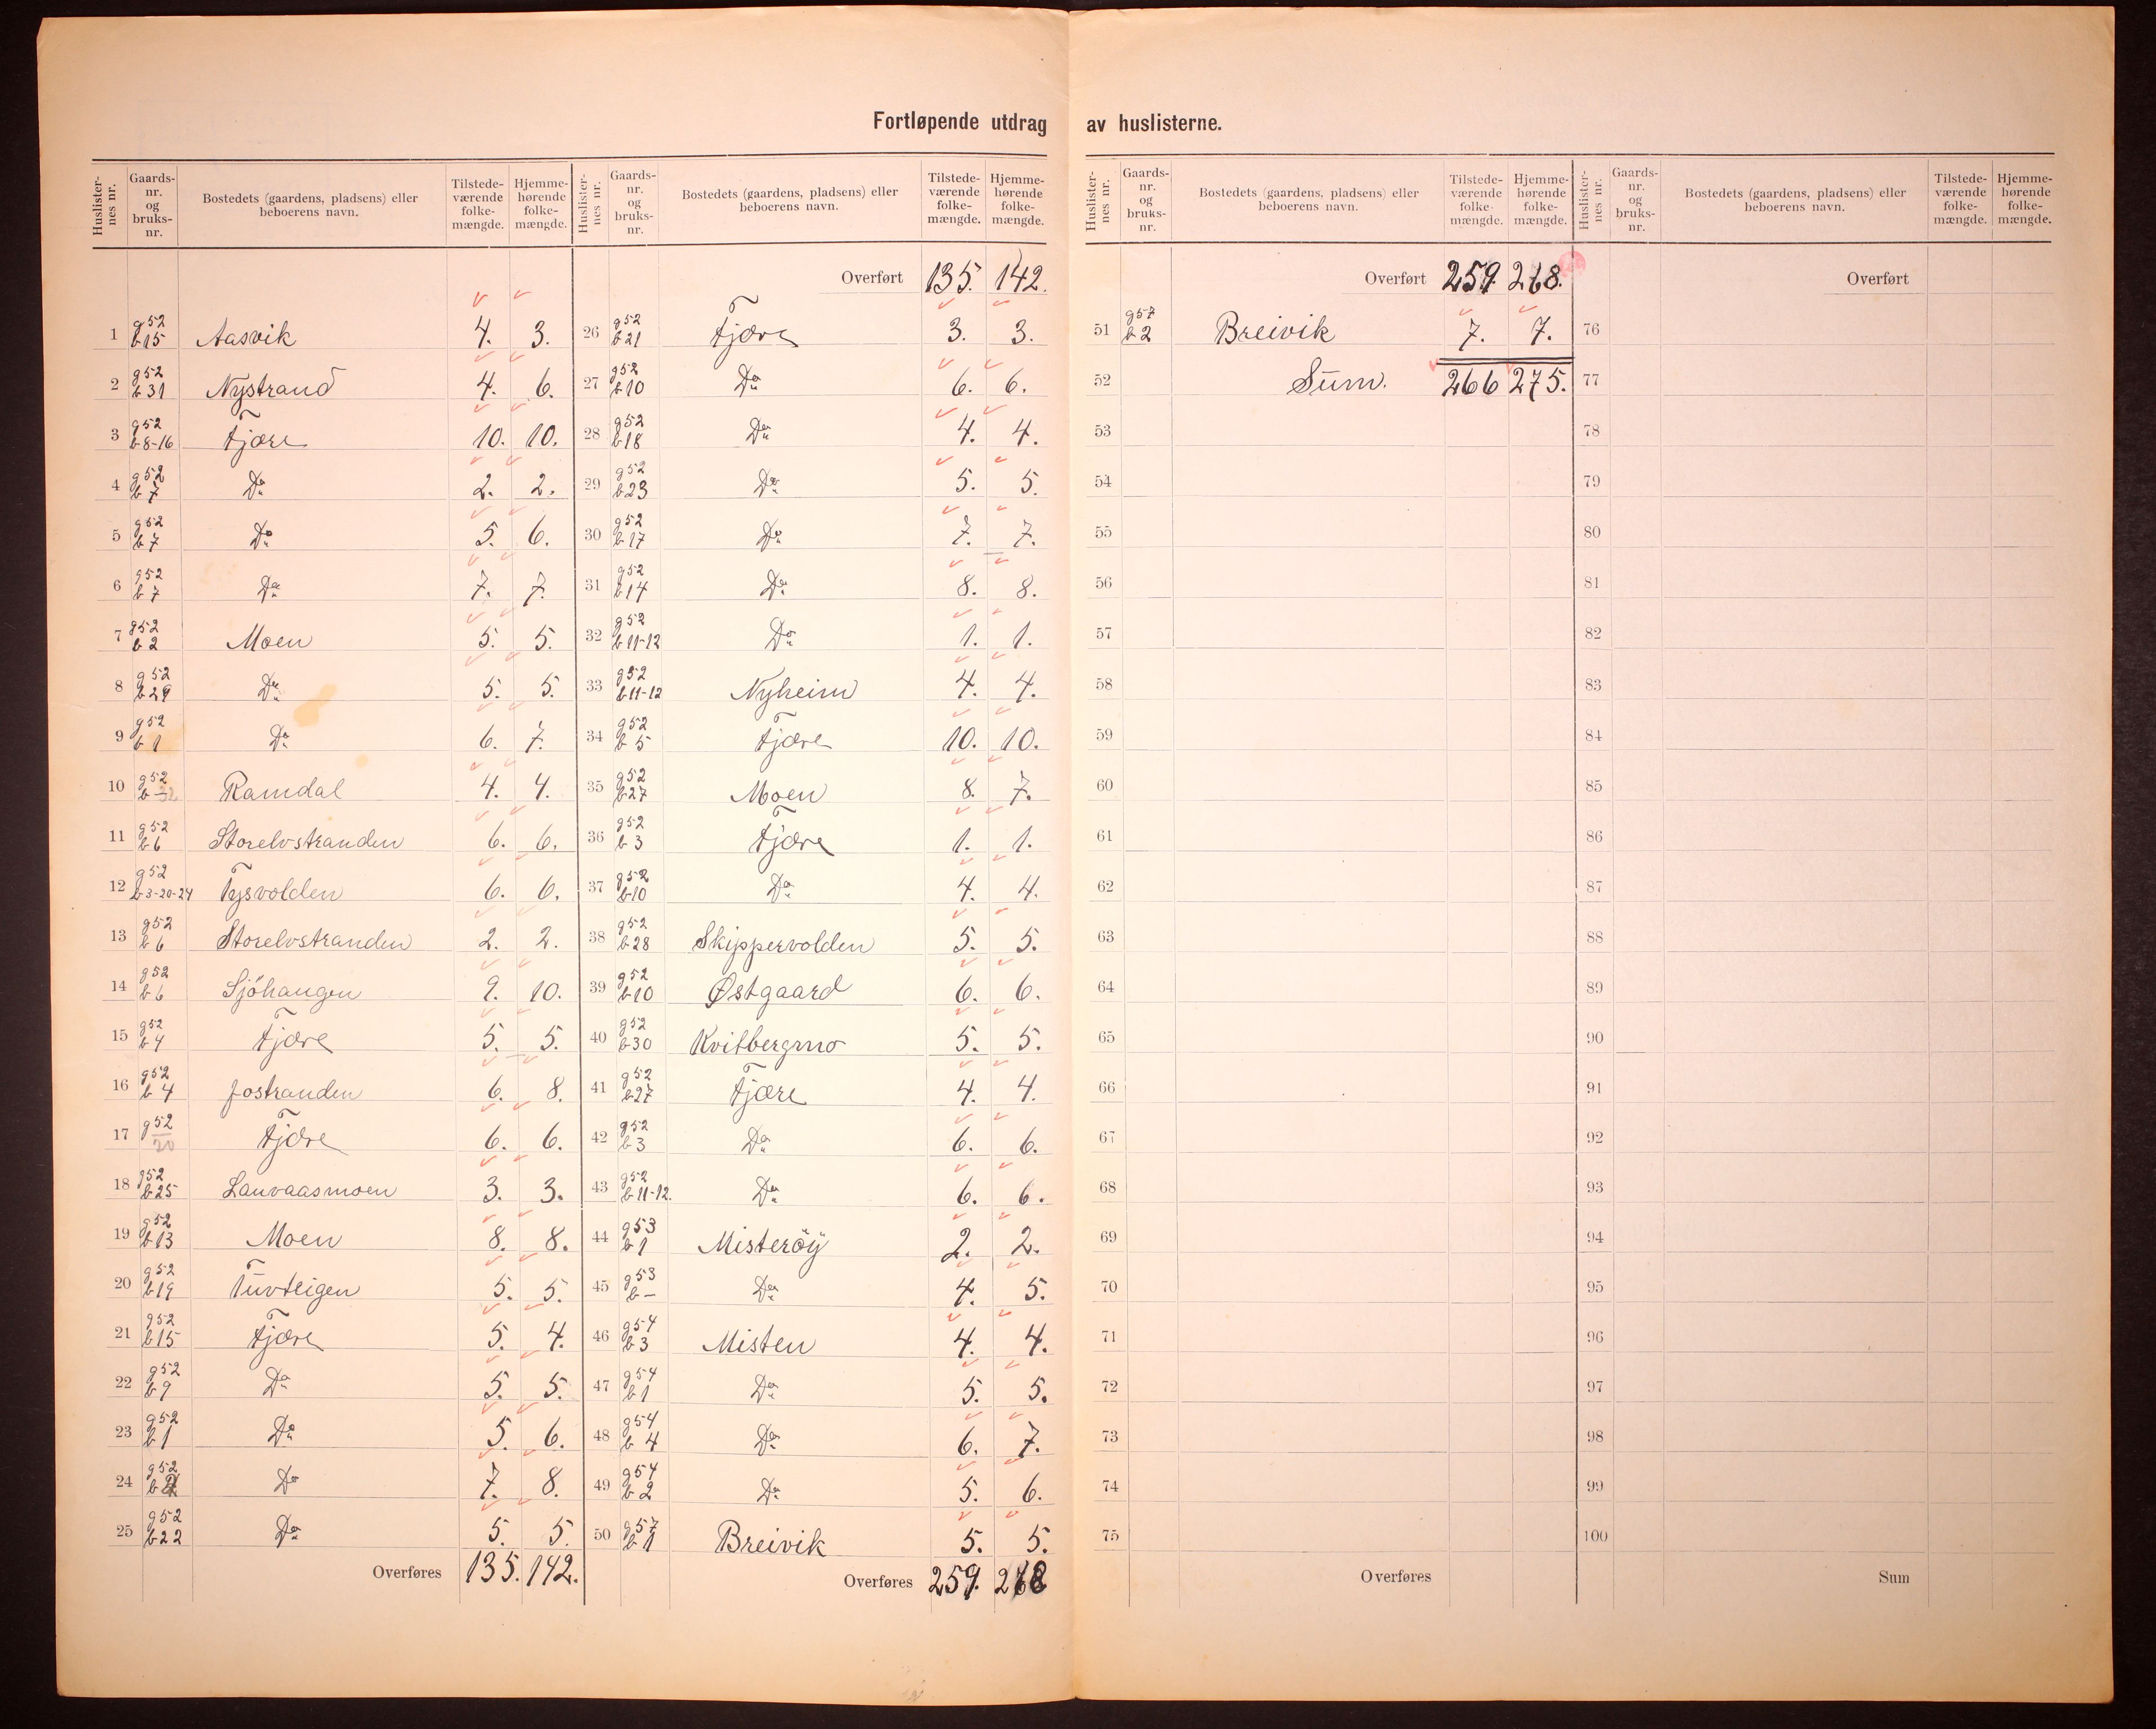 Fortløpende utdrag av huslisterne.
Huslisternes nr. Gaards-nr. og bruks-nr. Bostedets (gaardens, pladsens) eller beboerens navn. Tilstede-værende folke-mængde. Hjemme-hørende folke-mængde.
1 g52 b15 Aasvik 4. 3.
2 g52 b31 Nystrand 4. 6.
3 g52 b8-16 Fjære 10. 10.
4 g52 b7 Do 2. 2.
5 g52 b7 Do 5. 6.
6 g52 b7 Do 7. 7.
7 g52 b2 Moen 5. 5.
8 g52 b29 Do 5. 5.
9 g52 b1 Do 6. 7.
10 g52 b-32 Ramdal 4. 4.
11 g52 b6 Storelvstranden 6. 6.
12 g52 b3-20-24 Tysvolden 6. 6.
13 g52 b6 Storelvstranden 2. 2.
14 g52 b6 Sjöhaugen 9. 10.
15 g52 b4 Fjære 5. 5.
16 g52 b4 Jostranden 6. 8.
17 g52 20 Fjære 6. 6.
18 g52 b25 Lauvaasmoen 3. 3.
19 g52 b13 Moen 8. 8.
20 g52 b19 Tuvteigen 5. 5.
21 g52 b15 Fjære 5. 4.
22 g52 b9 Do 5. 5.
23 g52 b1 Do 5. 6.
24 g52 Do 7. 8.
25 g52 b22 Do 5. 5.
Overføres 135. 142.
Huslisternes nr. Gaards-nr. og bruks-nr. Bostedets (gaardens, pladsens) eller beboerens navn. Tilstede-værende folke-mængde. Hjemme-hørende folke-mængde.
Overført 135. 142.
26 g52 b21 Fjære 3. 3.
27 g52 b10 Do 6. 6.
28 g52 b18 Do 4. 4.
29 g52 b23 Do 5. 5.
30 g52 b17 Do 7. 7.
31 g52 b14 Do 8. 8.
32 g52 b11-12 Do 1. 1.
33 g52 b11-12 Nyheim 4. 4.
34 g52 b5 Fjære 10. 10.
35 g52 b27 Moen 8. 7.
36 g52 b3 Fjære 1. 1.
37 g52 b10 Do 4. 4.
38 g52 b28 Skippervolden 5. 5.
39 g52 b10 Østgaard 6. 6.
40 g52 b30 Kvitbergmo 5. 5.
41 g52 b27 Fjære 4. 4.
42 g52 b3 Do 6. 6.
43 g52 b11-12. Do 6. 6.
44 g53 b1 Misteröy 2. 2.
45 g53 b- Do 4. 5.
46 g54 b3 Misten 4. 4.
47 g54 b1 Do 5. 5.
48 g54 b4 Do 6. 7.
49 g54 b2 Do 5. 6.
50 g57 b1 Breivik 5. 5.
Overføres 259. 268
Huslisternes nr. Gaards-nr. og bruks-nr. Bostedets (gaardens, pladsens) eller beboerens navn. Tilstede-værende folke-mængde. Hjemme-hørende folke-mængde.
Overført 259. 268.
51 g57 b2 Breivik 7. 7.
52 Sum. 266 275.
53
54
55
56
57
58
59
60
61
62
63
64
65
66
67
68
69
70
71
72
73
74
75
Overføres
Huslisternes nr. Gaards-nr. og bruks-nr. Bostedets (gaardens, pladsens) eller beboerens navn. Tilstede-værende folke-mængde. Hjemme-hørende folke-mængde.
Overført
76
77
78
79
80
81
82
83
84
85
86
87
88
89
90
91
92
93
94
95
96
97
98
99
100
Sum